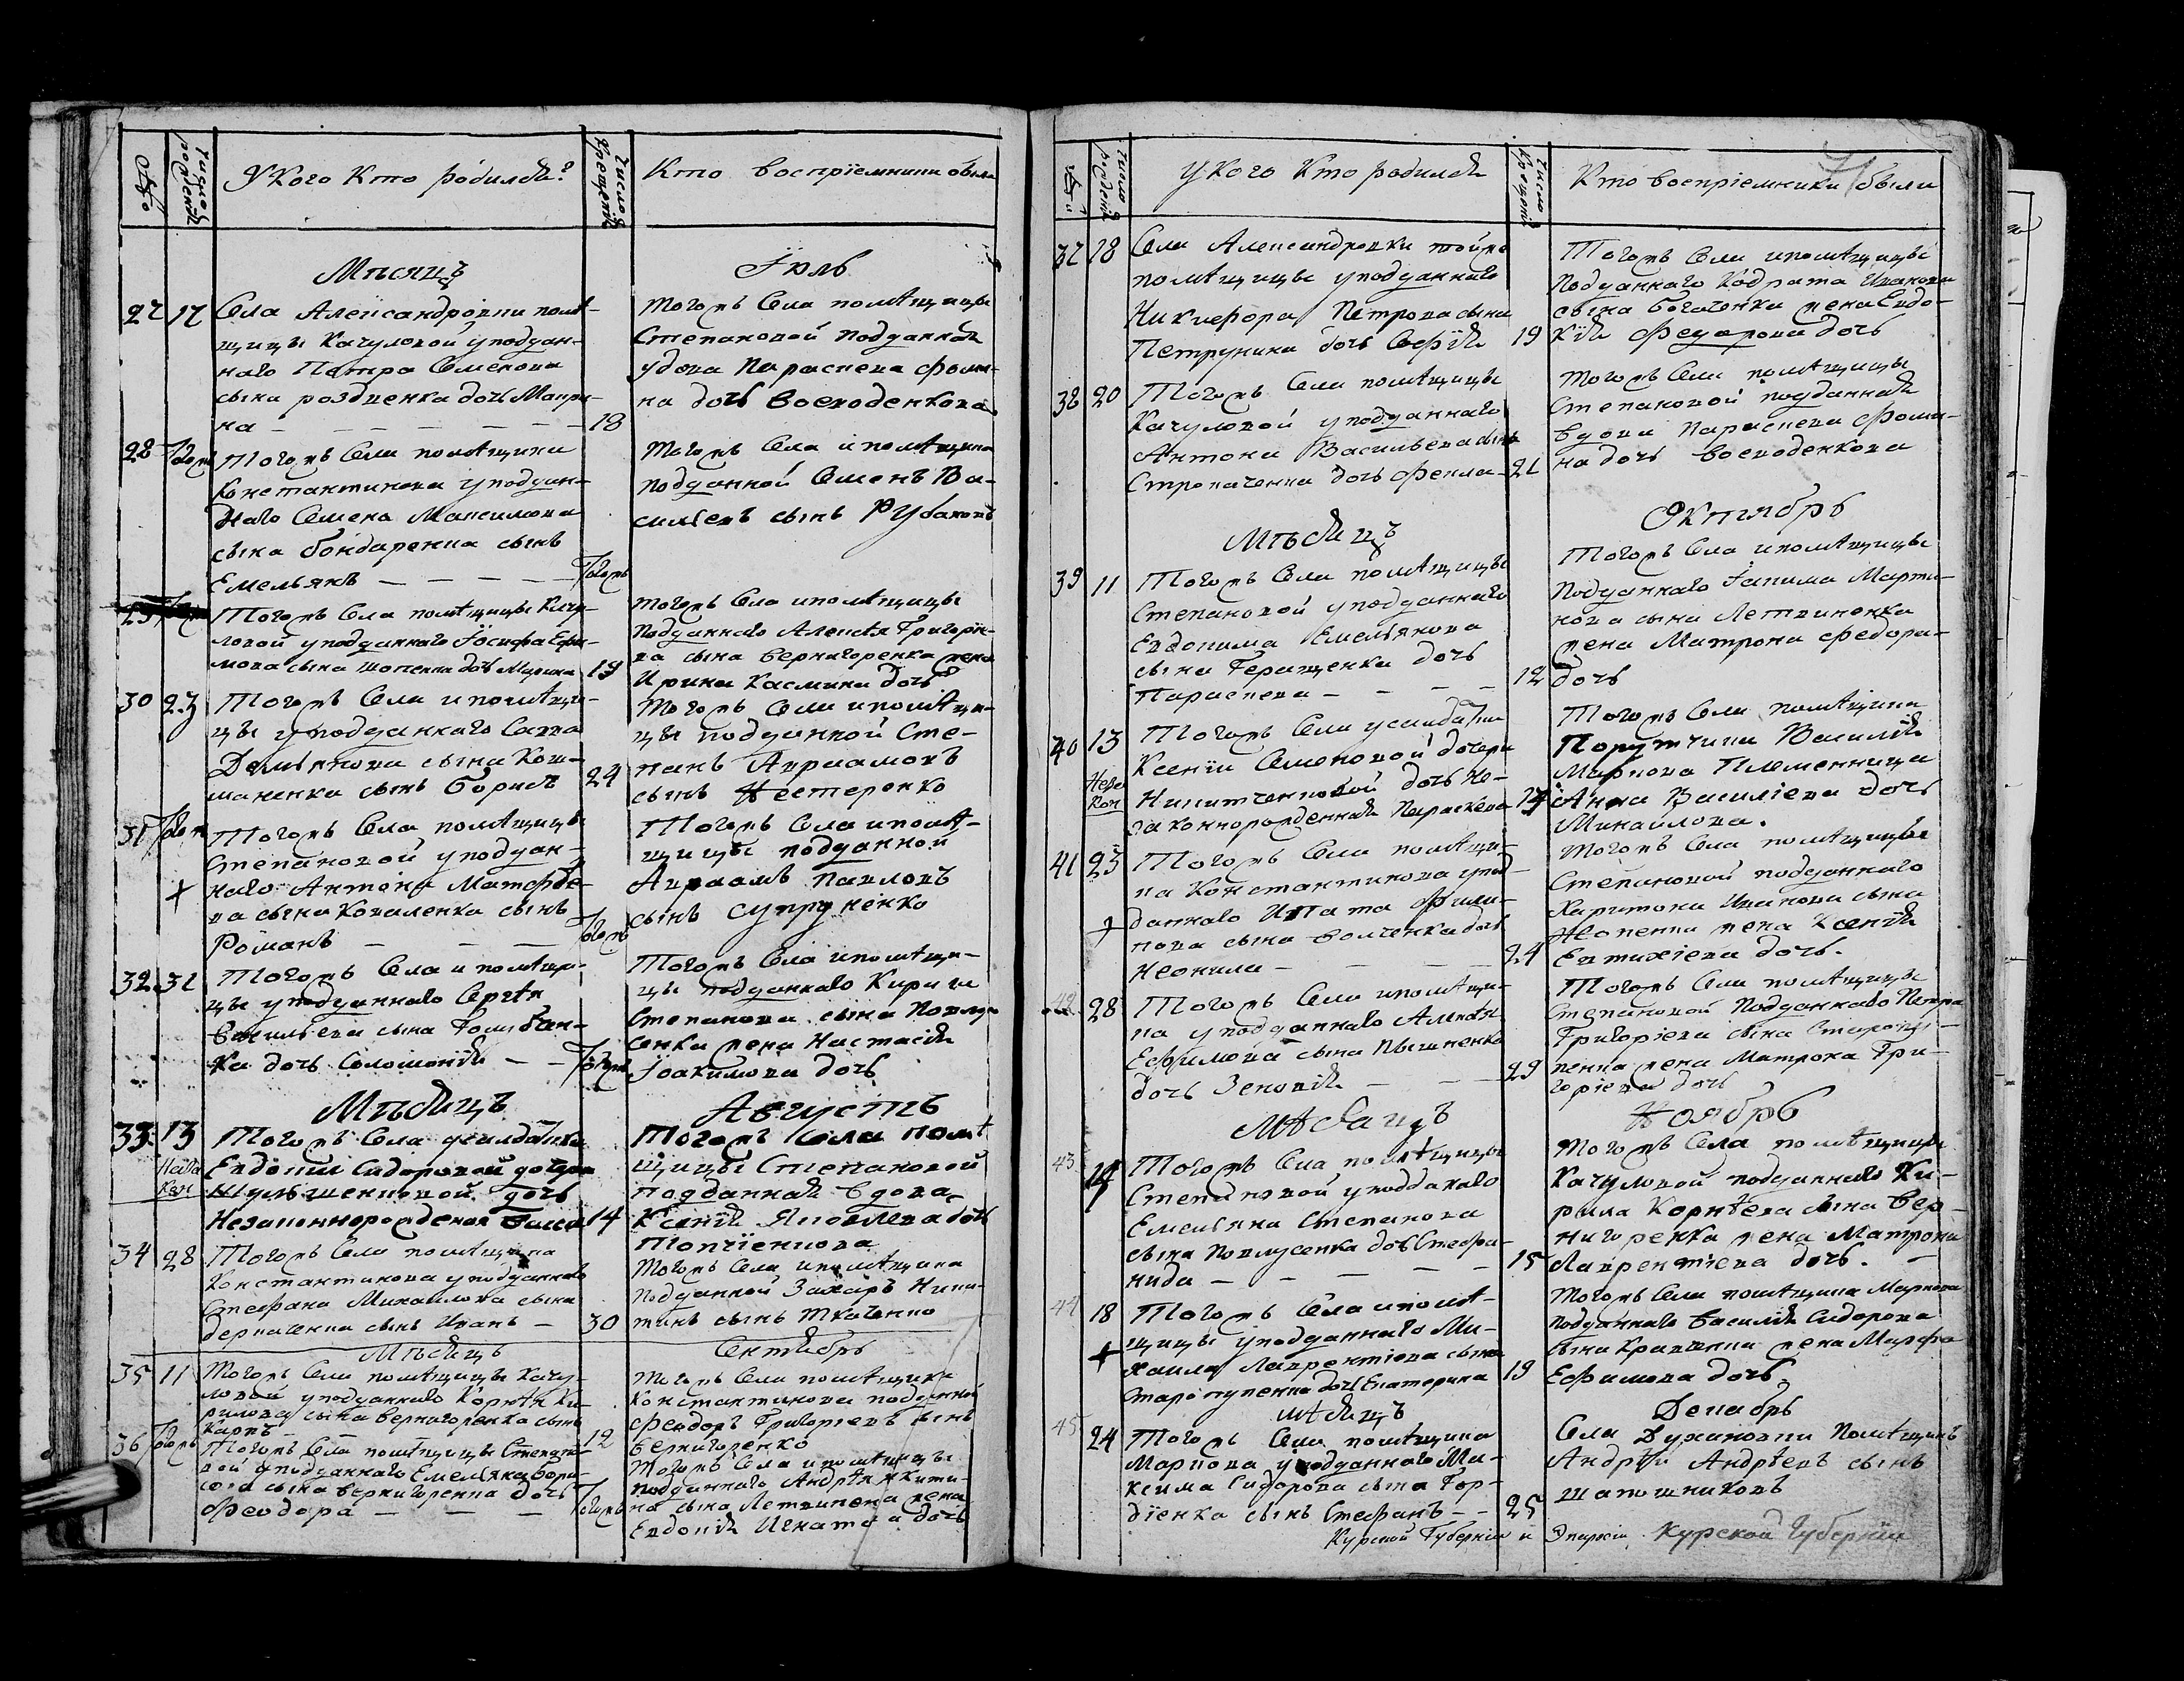 число рожденія
У Кого Кто родился?
число крещенія
Кто воспріемники были
Мѣсяцъ
Іюль
27 17
Села Александровки помѣ-
щицы Качуловой у поддан-
наго Петра Семенова
сына дочь Маври-
на — — — — — 18
Тогожъ Села помѣщицы
Степановой подданная
удова Параскева Фоми-
на дочь Воеводенкова
28
Тогожъ Села помѣщика
Константинова у поддан-
наго Семена Максимова
сына бондаренка сынъ
Емельянъ — — — — тогожъ
Тогожъ Села и помѣщика
подданной Семенъ Ва-
сильевъ сынъ Рубановъ
29
Тогожъ Села помѣщицы Качу-
ловой у подданнаго Іосифа Ефи-
мова сына дочь Марина 19
тогожъ Села и помѣщицы
подданнаго Алексѣя Григорье-
ва сына Вернигоренка жена
Ирина Касмина дочь
30 23
Тогожъ Села и помѣщи-
цы у подданнаго Савва
Демьянова сына Кош-
маненка сынъ борисъ 24
Тогожъ Села и помѣщи-
цы подданной Сте-
панъ Авраамовъ
сынъ Нестеренко
31 тогожъ
Тогожъ Села помѣщицы
Степановой у поддан-
наго Антона Матфѣе-
ва сына Коваленка сынъ
Романъ — — — тогожъ
Тогожъ Села и помѣ-
щицы подданной
Авраамъ Павловъ
сынъ Супруненко
32 31
Тогожъ Села и помѣщи-
цы у подданнаго Сергѣя
Васильева сына Голубен-
ка дочь Соломонія — — тогожъ
Тогожъ Села и помѣщи-
цы подданнаго Кирила
Степанова сына Повлу-
сенка жена Настасія
Іоакимова дочь
Мѣсяцъ
Августъ
33 13
Тогожъ Села усолдатки
Евдокіи Сидоровой дочери
дочь
Незаконнорожденая 14
Тогожъ Села помѣ-
щицы Степановой
подданная вдова
Ксенія Яковлева дочь
34 28
Тогожъ Села помѣщика
Константинова у подданнаго
Стефана Михайлова сына
деркаченка сынъ Иванъ — 30
Тогожъ Села и помѣщика
подданной Захаръ Ники-
тинъ сынъ Ткаченко
Мѣсяцъ
Сентябрь
35 11
Тогожъ Села помѣщицы Качу-
ловой у подданнаго Корнѣя Ки-
рилова сына Вернигоренка сынъ
Карпъ — — 12
Тогожъ Села помѣщика
Константинова подданной
Феодоръ Григорьевъ сынъ
Вернигоренко
36 тогожъ
Тогожъ Села помѣщицы Степано-
вой у подданнаго Емельяна бори-
сова сына Вернигоренка дочь
Феодора — — — тогожъ
Тогожъ Села и помѣщицы
подданнаго Андрѣя Никити-
на сына Летвинена жена
Евдокія Игнатова дочь
число рожденія
У Кого Кто родился
число крещенія
Кто воспріемники были
37 18
Села Александровки тойжъ
помѣщицы у подданнаго
Никифора Петрова сына
Петруника дочь Софія 19
Тогожъ Села и помѣщицы
подданнаго Кодрата Иванова
сына богаченка жена Евдо-
кія Федорова дочь
38 20
Тогожъ Села помѣщицы
Качуловой у подданнаго
Антона Васильева сына
Стропаченка дочь Фекла 21
Тогожъ Села помѣщицы
Степановой подданная
вдова Параскева Фоми-
на дочь Воеводенкова
Мѣсяцъ
Октябрь
39 11
Тогожъ Села помѣщицы
Степановой у подданнаго
Евдокима Емельянова
сына Геращенка дочь
Параскева — — — — 12
Тогожъ Села и помѣщицы
подданнаго Іакима Марти-
нова сына Летвиненка
жена Матрона Федора-
дочь
40 13
Тогожъ Села усолдатки
Ксеніи Семеновой дочери
Никитченковой дочь Не-
законнорожденная Параскева 14
Тогожъ Села помѣщика
Порутчика Василія
Маркова Племенница
Анна Василіева дочь
Михайлова.
41 23
Тогожъ Села помѣщи-
ка Константинова у под-
даннаго Ипата Фили-
пова сына волченка дочь
Неонила — — — 24
Тогожъ Села помѣщицы
Степановой подданнаго
Харитона Иванова сына
жена Ксенія
Евтихіева дочь.
42 28
Тогожъ Села и помѣщи-
ка у подданнаго Алексѣя
Ефимова сына Пышненко
дочь Зеновія — — 29
Тогожъ Села помѣщицы
Степановой подданнаго Петра
Григоріева сына
жена Матрона Гри-
горіева дочь
Мѣсяцъ
Ноябрь
43 14
Тогожъ Села помѣщицы
Степановой у подданаго
Емельяна Степанова
сына Повлусенка дочь Стефа-
нида — — — — — 15
Тогожъ Села помѣщицы
Качуловой подданнаго Ки-
рила Корнѣева сына Вер-
нигоренка жена Матрона
Лаврентіева дочь.
44 18
Тогожъ Села и помѣ-
щицы у подданнаго Ми-
хаила Лаврентіева сына
дочь Екатерина 19
Тогожъ Села помѣщика Маркова
подданнаго Василія Сидорова
сына Кравченка жена Марфа
Ефимова дочь
Мѣсяцъ
Декабрь
45 24
Тогожъ Села помѣщика
Маркова у подданнаго Ма-
ксима Сидорова сына Гор-
діенка сынъ Стефанъ — — 25
Села Духановки Помѣщикъ
Андрѣй Андрѣевъ сынъ
Шапошниковъ
Курской Губерніи и Эпархіи Курской Губерніи